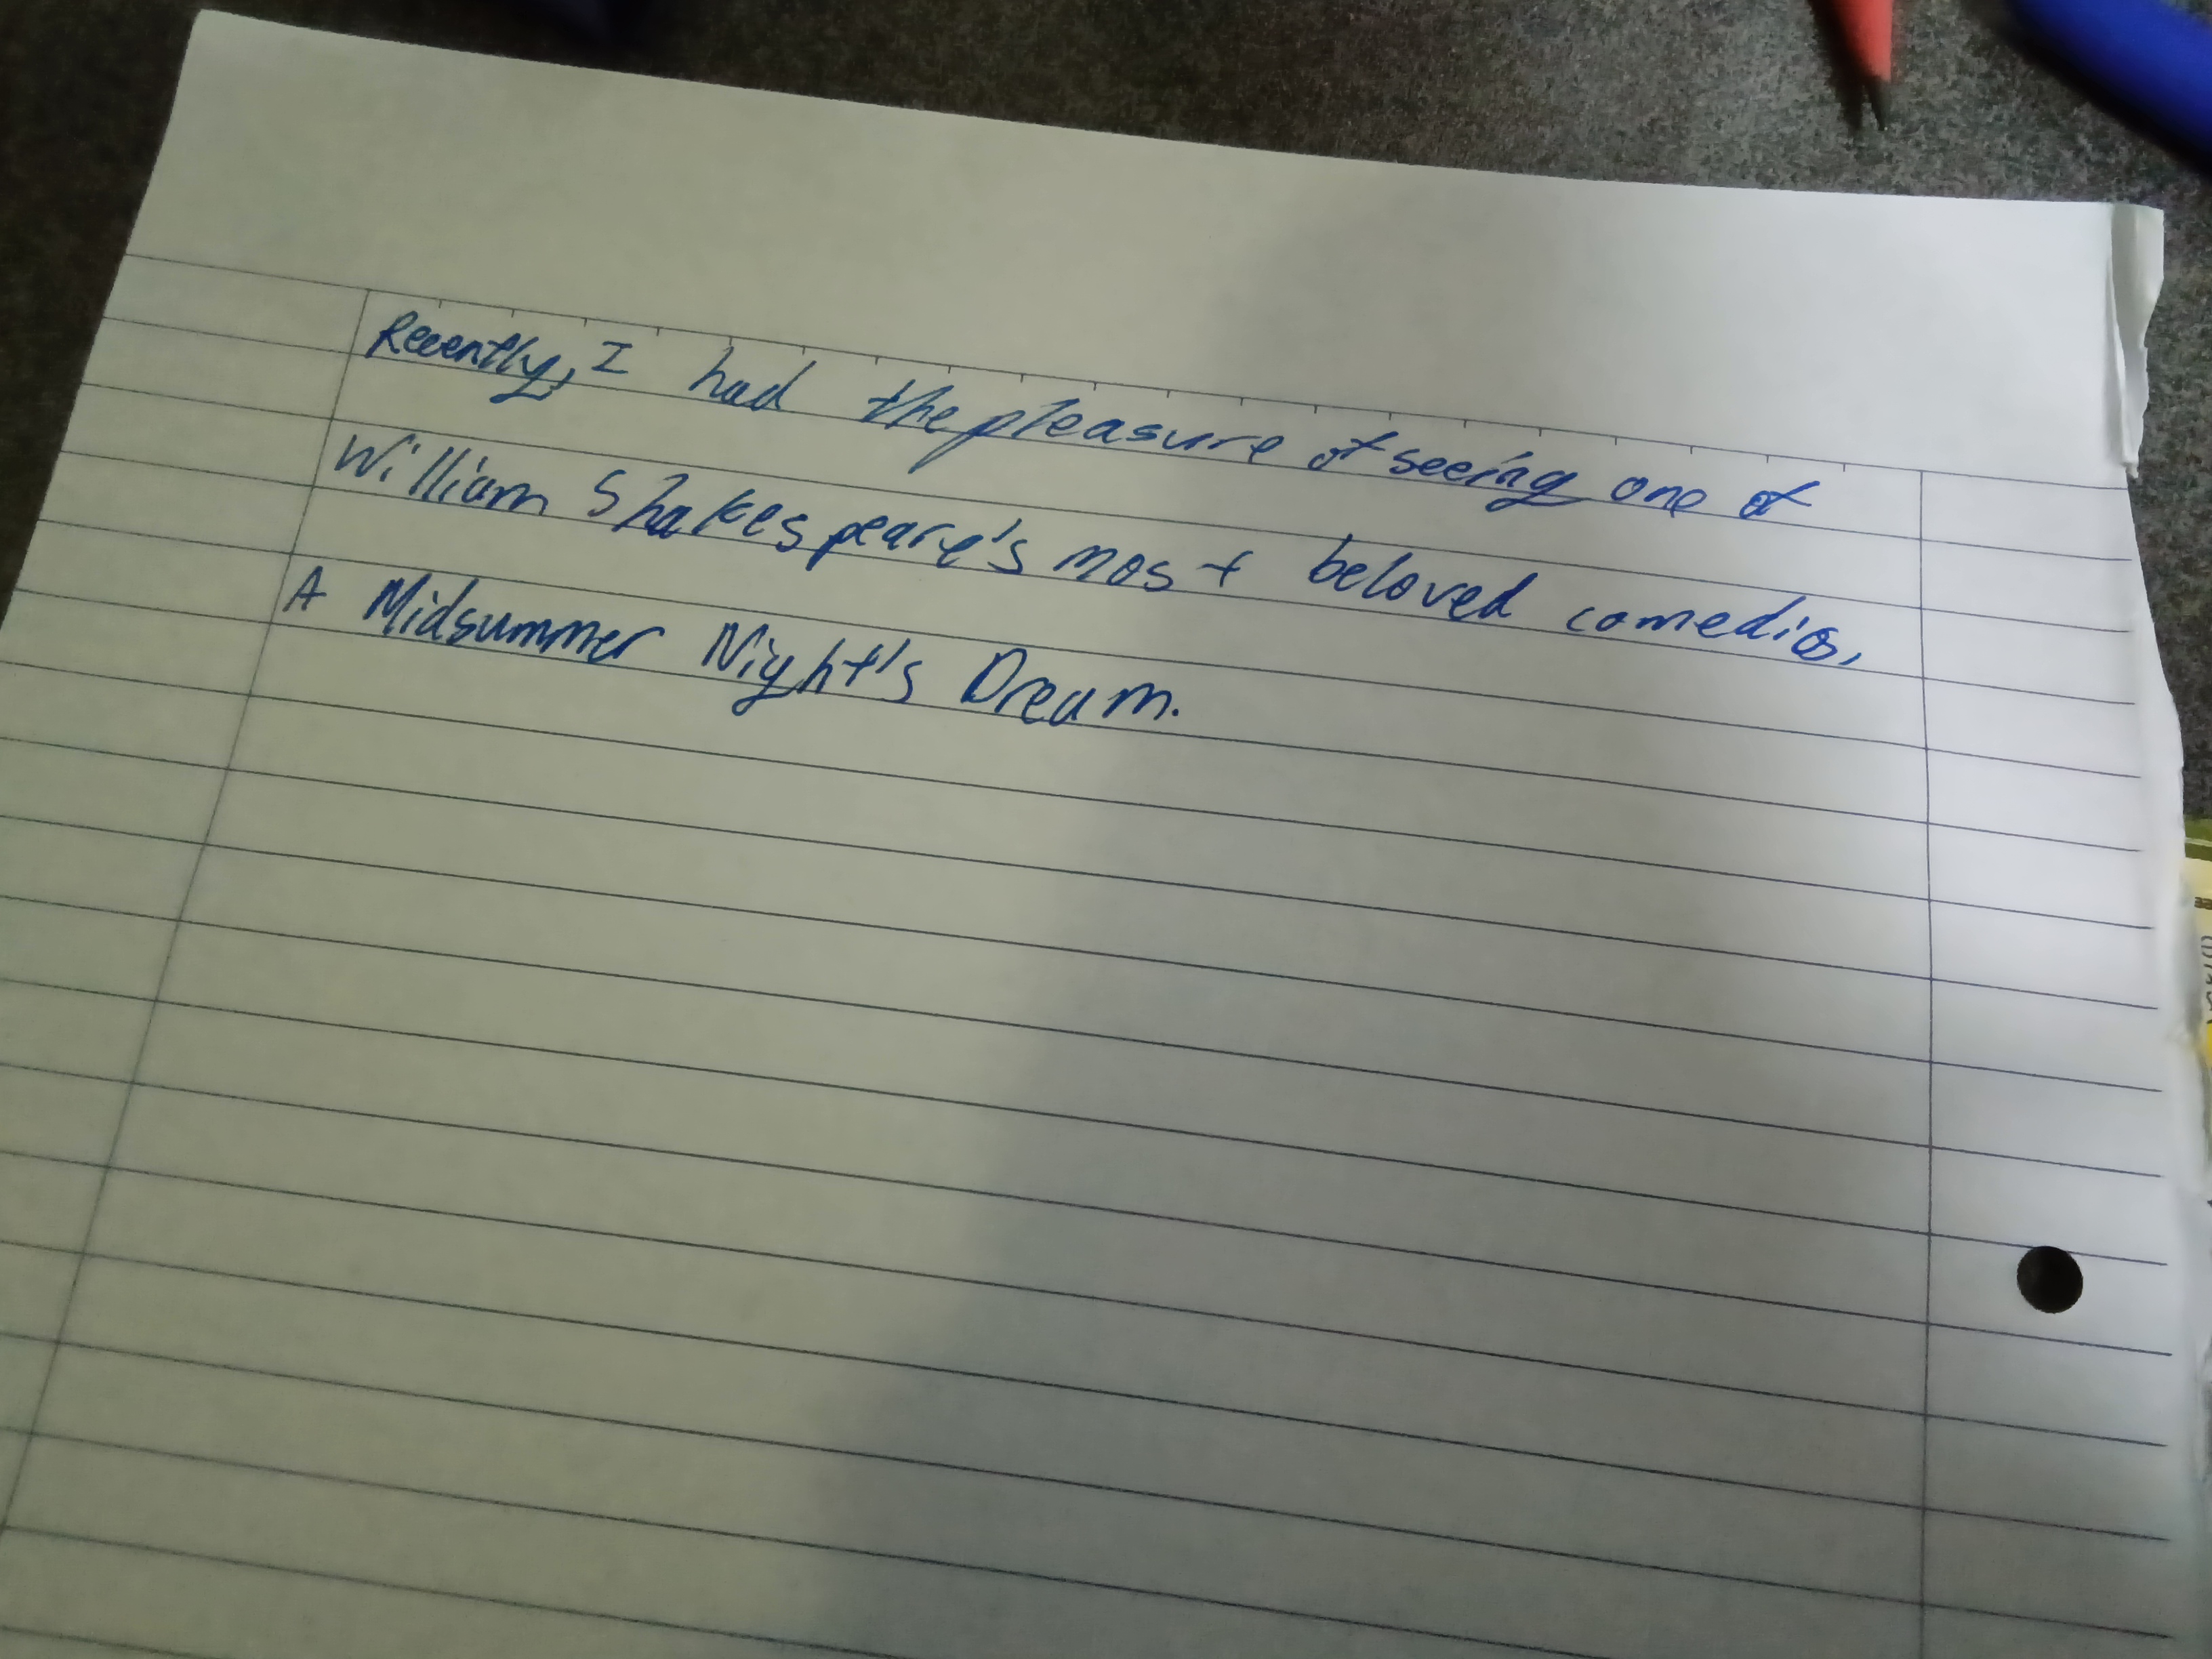 Recently, I had the pleasure of seeing one of
William Shakespeare's most beloved comedies,
A Midsummer Night's Dream.